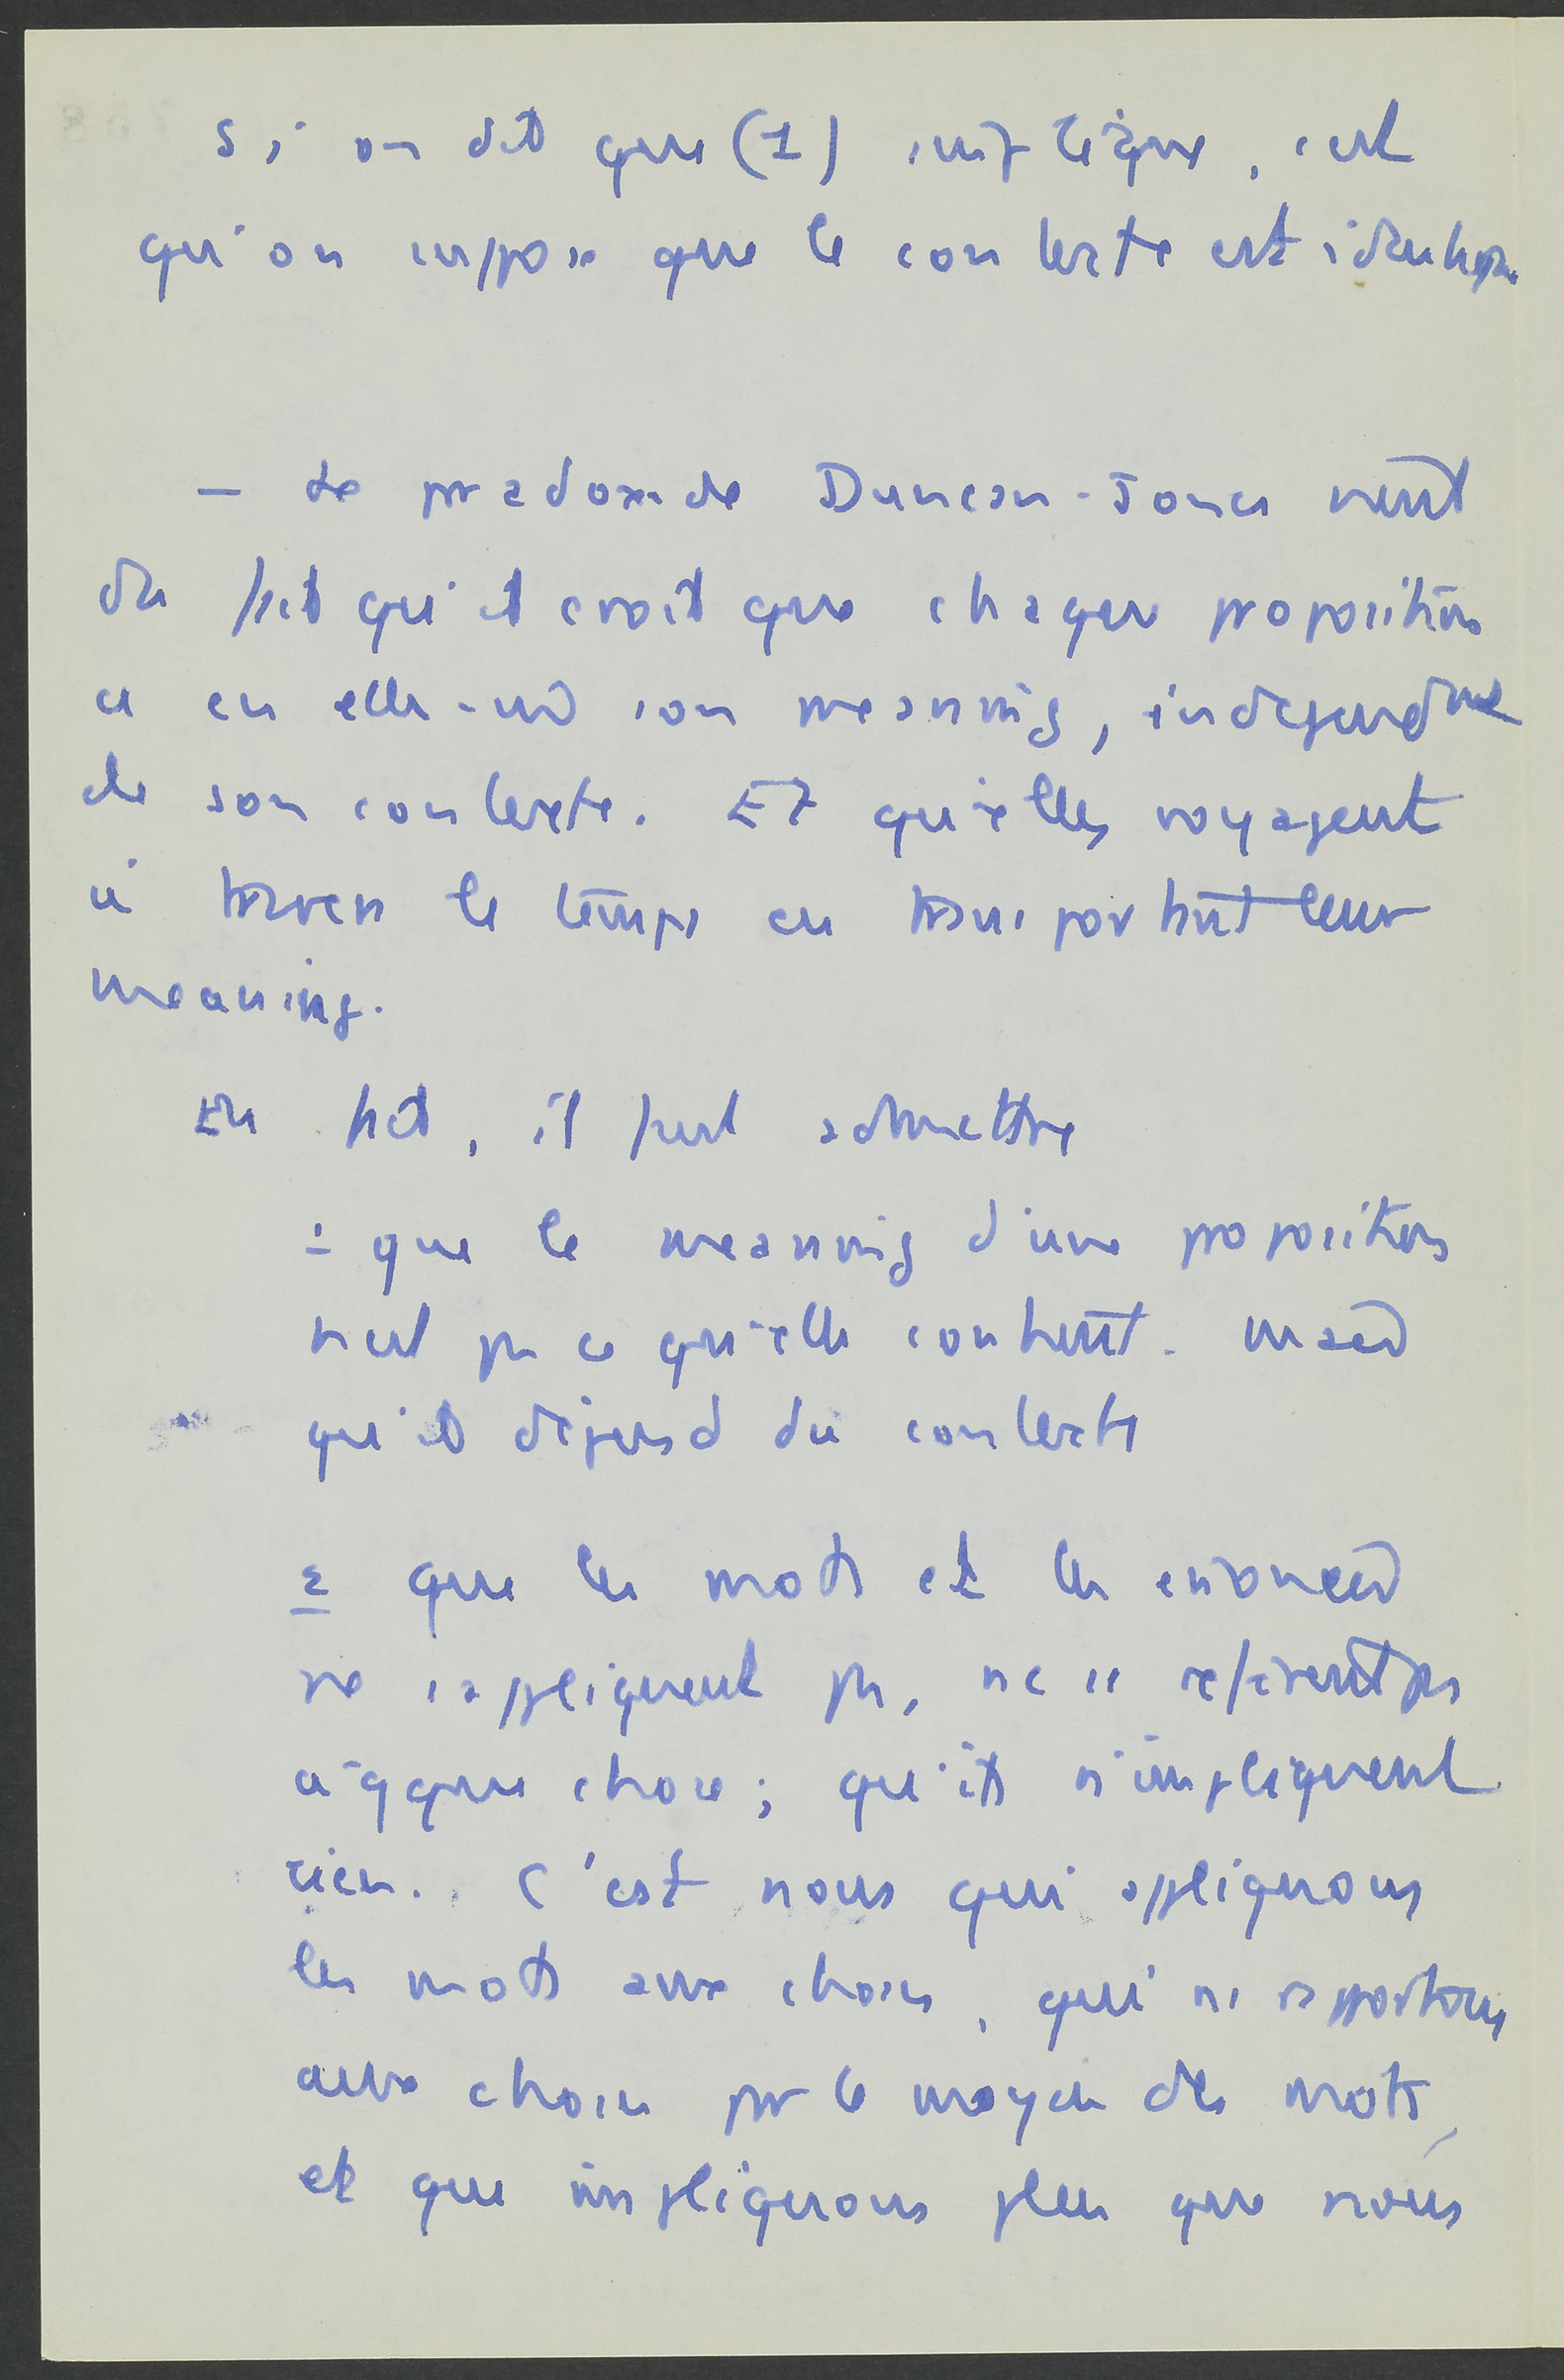 Si on dit que (1) implique, c'est
qu'on suppose que le contexte est identique
– Le paradoxe de Duncan-Jones vient
du fait qu'il croit que chaque proposition
a en elle-m son meaning, indépendmt
de son contexte. Et qu'elles voyagent
à travers le temps en transportant leur
meaning.
En fait, il faut admettre
1 que le meaning d'une proposition
n'est pas ce qu'elle contient. mais
qu'il dépend du contexte
2 que les mots et les énoncés
ne s'appliquent pas, ne se réfèrent pas
à qque chose ; qu'ils n'impliquent
rien. C'est nous qui appliquons
les mots aux choses, qui ns rapportons
aux choses par le moyen des mots,
et que impliquons plus que nous